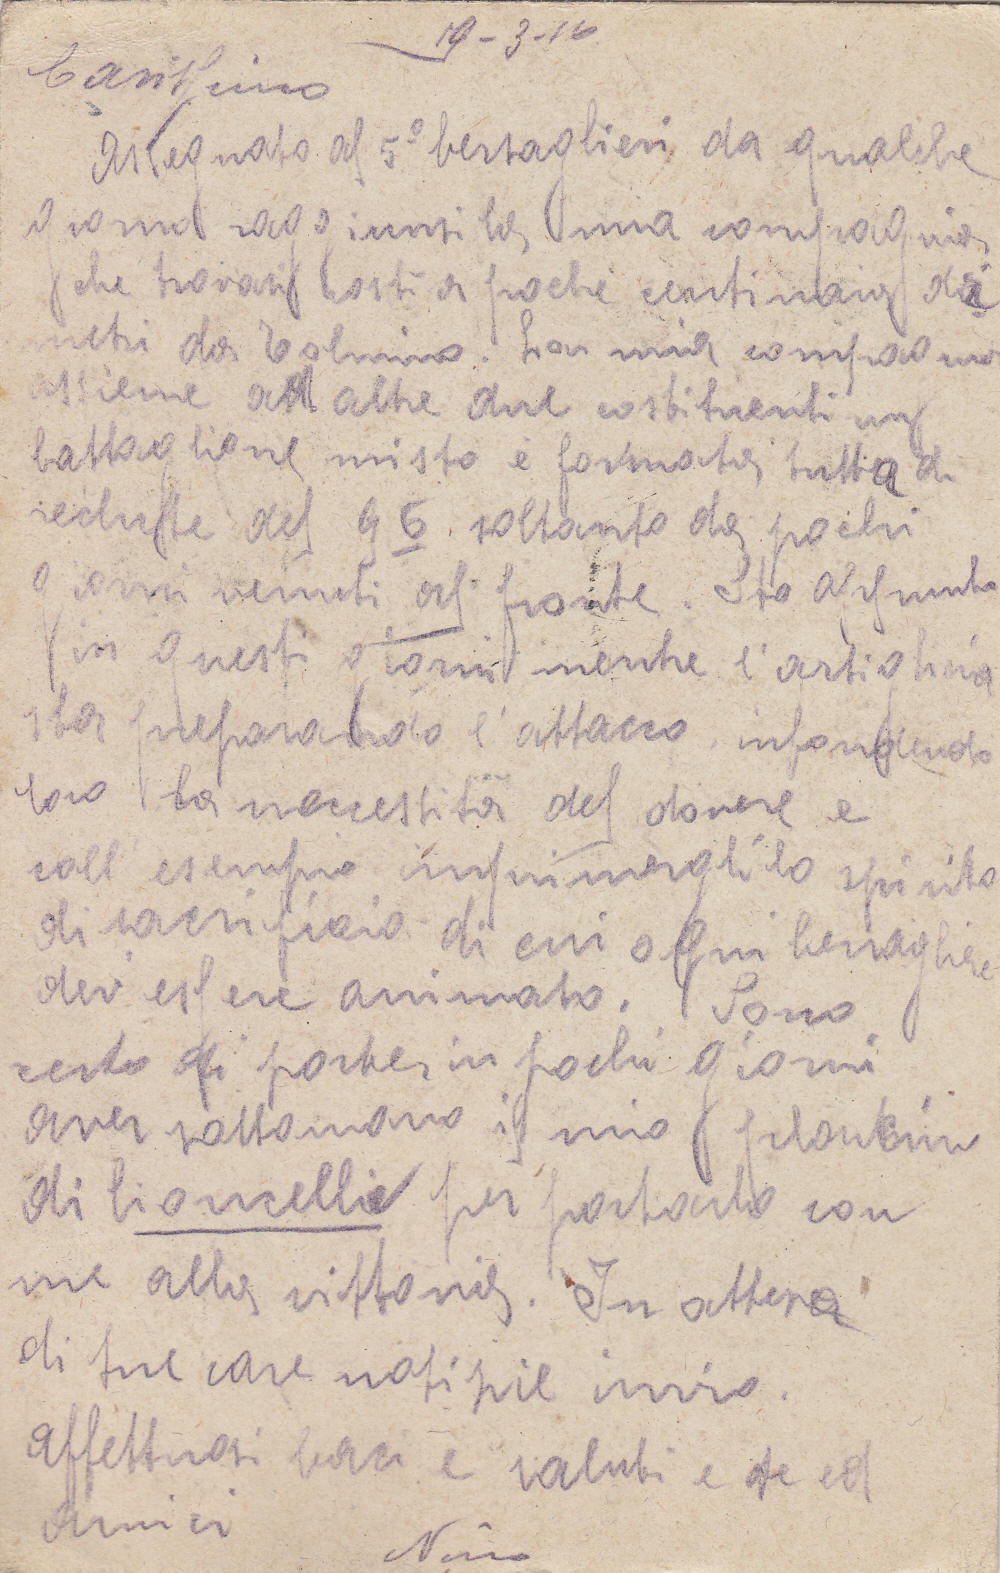 19-3-16
Carissimo
Assegnato al 5° bersaglieri da qualche
giorno raggiunsi la mia compagnia
che trovasi costì a poche centinaia di
metri da Tolmino. La mia compagnia
assieme ad altre due costituenti un
battaglione misto e formata tutta di
reclute del 96 soltanto da pochi
giorni venuti al fronte. Sto
in questi giorni mentre l'artiglieria
sta preparando l'attacco, infondendo
loro la neccessità del dovere e
coll' esempio imprimergli lo spirito
di sacrificio di cui ogni bersagliere
dev' essere animato. Sono
certo di poter, in pochi giorni
aver sottomano il mio
di lioncelli per portarlo con
me alla vittoria. In attesa
di tue care notizie invio.
Affettuosi baci e saluti e te ed
amici
Nino